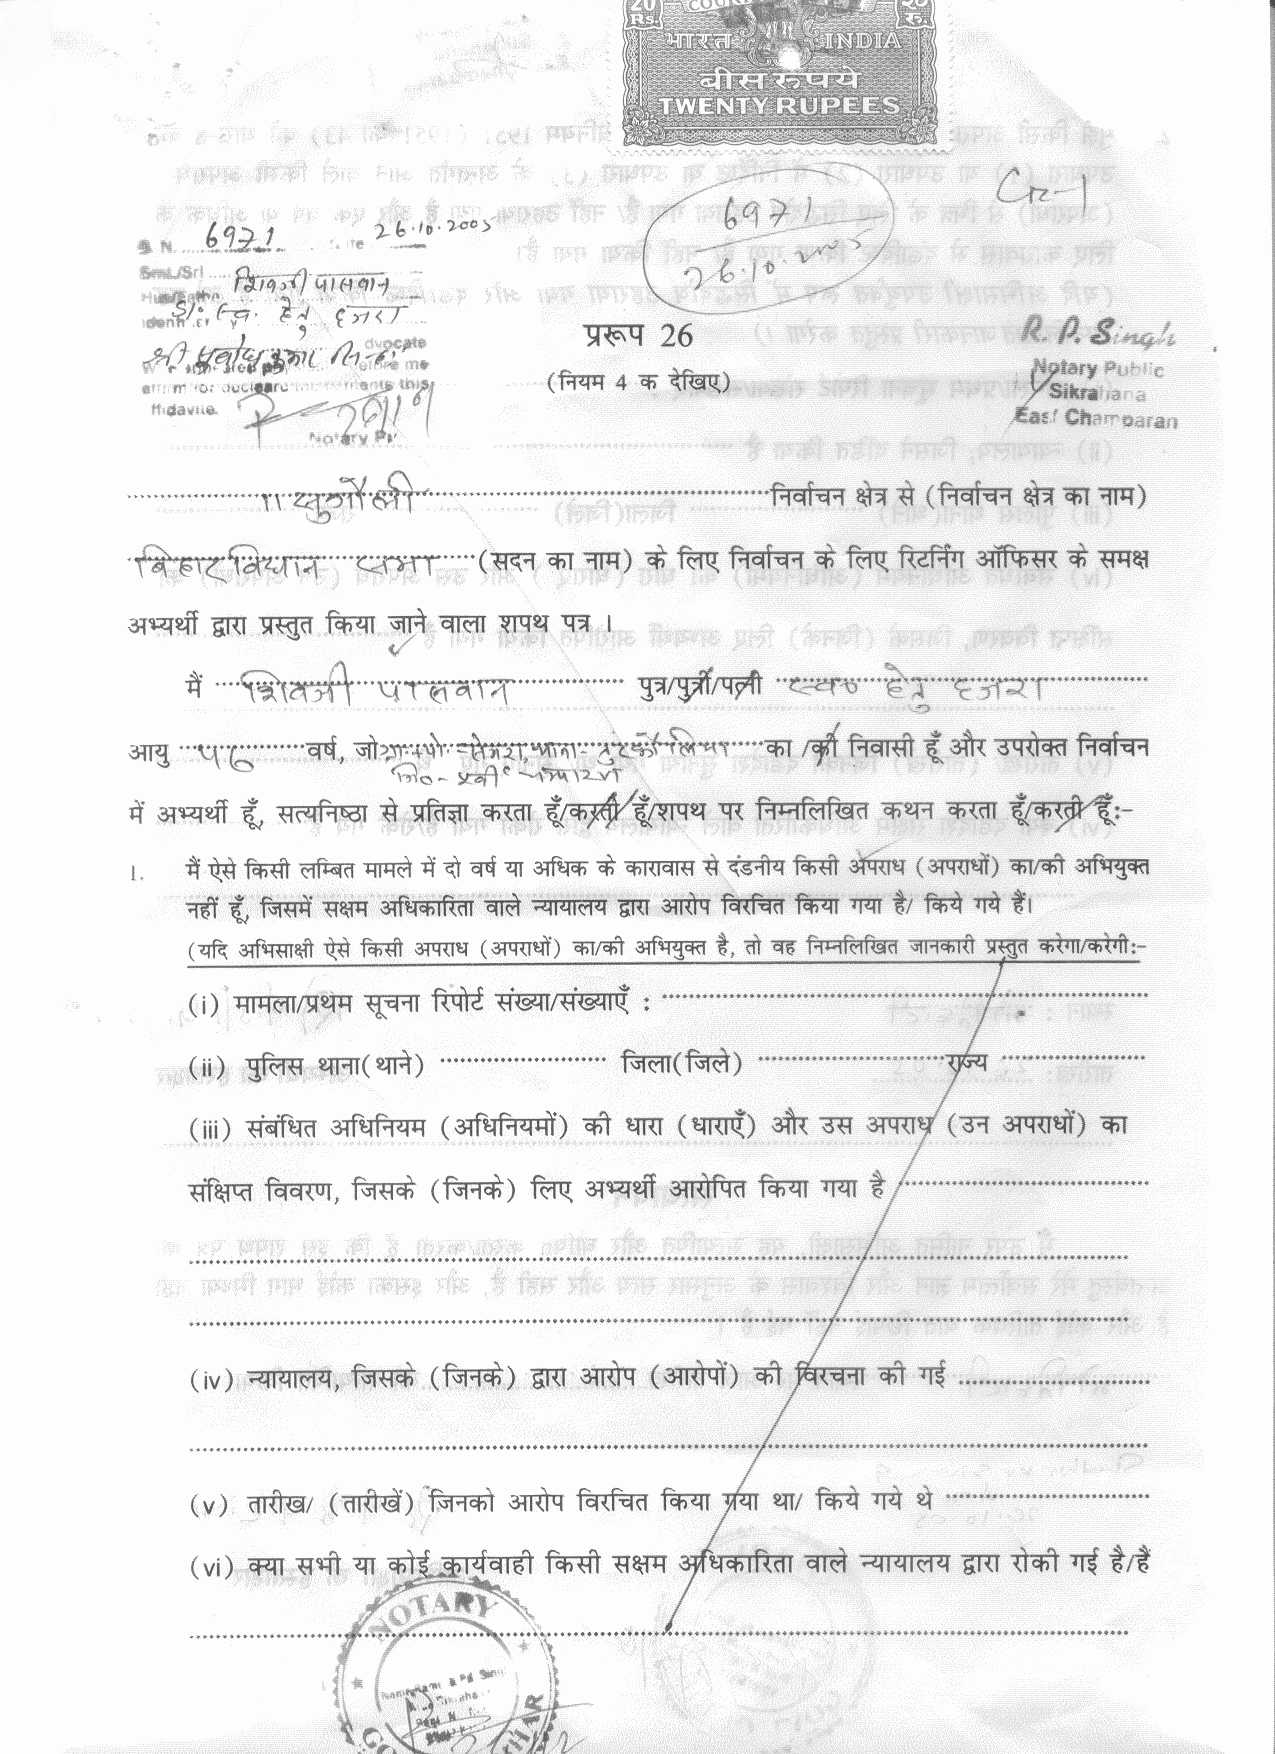 20 Rs. COURT २० रु.
भारत INDIA
बीस रुपये
TWENTY RUPEES
6971
26.10.2005
S N. 6971 Date 26.10.2005
Smt./Sri शिवजी पासवान
स्व. हेतु हजरा
श्री प्रबोध कुमार सिन्हा
Advocate
before me
this
Notary
प्ररूप 26
(नियम 4 क देखिए)
R. P. Singh
Notary Public
Sikrahana
East Champaran
11 सुगौली निर्वाचन क्षेत्र से (निर्वाचन क्षेत्र का नाम)
बिहार विधान सभा (सदन का नाम) के लिए निर्वाचन के लिए रिटर्निंग ऑफिसर के समक्ष
अभ्यर्थी द्वारा प्रस्तुत किया जाने वाला शपथ पत्र ।
मैं शिवजी पासवान पुत्र/पुत्री/पत्नी स्व० हेतु हजरा
आयु वर्ष, जो थाना- तुरकौलिया का /की निवासी हूँ और उपरोक्त निर्वाचन
जि०- पूर्वी चम्पारण
में अभ्यर्थी हूँ, सत्यनिष्ठा से प्रतिज्ञा करता हूँ/करती हूँ/शपथ पर निम्नलिखित कथन करता हूँ/करती हूँ:-
1. मैं ऐसे किसी लम्बित मामले में दो वर्ष या अधिक के कारावास से दंडनीय किसी अपराध (अपराधों) का/की अभियुक्त
नहीं हूँ, जिसमें सक्षम अधिकारिता वाले न्यायालय द्वारा आरोप विरचित किया गया है/ किये गये हैं।
(यदि अभिसाक्षी ऐसे किसी अपराध (अपराधों) का/की अभियुक्त है, तो वह निम्नलिखित जानकारी प्रस्तुत करेगा/करेगी:-
(i) मामला/प्रथम सूचना रिपोर्ट संख्या/संख्याएँ :
(ii) पुलिस थाना(थाने) जिला(जिले) राज्य
(iii) संबंधित अधिनियम (अधिनियमों) की धारा (धाराएँ) और उस अपराध (उन अपराधों) का
संक्षिप्त विवरण, जिसके (जिनके) लिए अभ्यर्थी आरोपित किया गया है
(iv) न्यायालय, जिसके (जिनके) द्वारा आरोप (आरोपों) की विरचना की गई
(v) तारीख/ (तारीखें) जिनको आरोप विरचित किया गया था/ किये गये थे
(vi) क्या सभी या कोई कार्यवाही किसी सक्षम अधिकारिता वाले न्यायालय द्वारा रोकी गई है/हैं
NOTARY